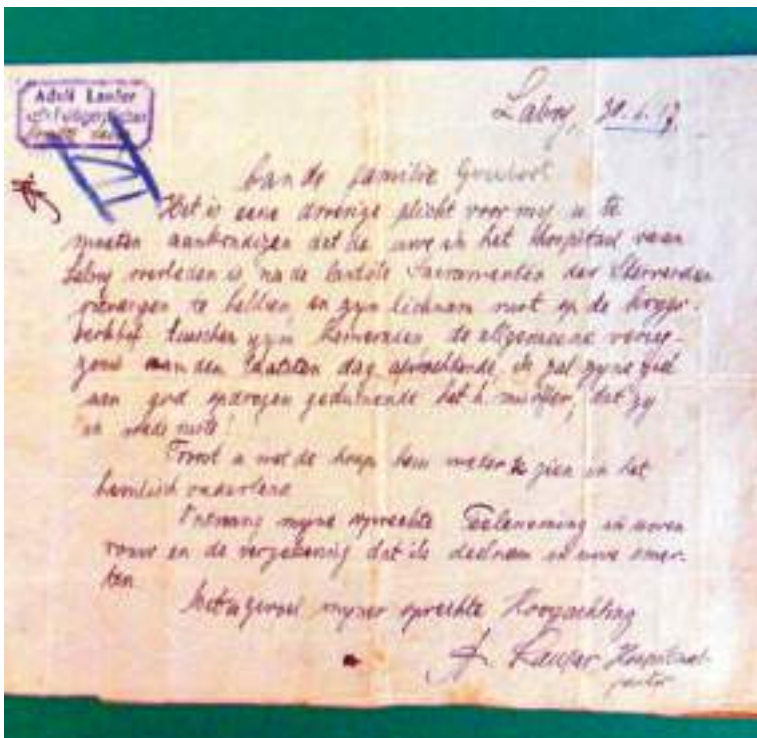 Adolf Laufer
Labry, 30.1.17.
Aan de familie
Het is eene droevige plicht voor my u te
moeten aankondigen dat de uwe in het Hospitaal van
Labry overleden is na de laatste Sacramenten der Stervenden
ontvangen te hebben, en zyn lichaam rust op de
kerkhof tusschen zyn kameraden de allgemeene
aan den laatsten dag afwachtende, ik zal zyne ziel
aan god opdragen gedurende het h. misoffer, dat zy
in vrede ruste!
Troost u met de hoop hem weder te zien in het
hemlisch vaderland
Ontvang myne oprechte Teelneming in uwen
rouw en de verzekering dat ik deelnem in uwe smer-
ten
myner oprechte Hoogachting
A. Laufer Hospitaal-
pastor